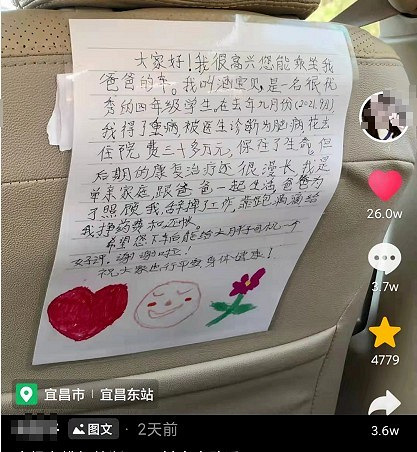 大家好!我很高兴您能乘坐我
爸爸的车。我叫涵宝贝,是一名很优
秀的四年级学生,在去年九月份(2021.9月)
我得了重病,被医生诊断为脑病,花去
住院费三十多万元,保住了生命,但
后期的康复治疗还很漫长,我是
单亲家庭,跟爸爸一起生活,爸爸为
了照顾我,辞掉工作,靠跑滴滴给
我挣药费和还账
希望您下车后能给司机一个
好评,谢谢啦!
祝大家出行平安身体健康!
26.0w
3.7w
4779
3.6w
宜昌市 | 宜昌东站
图文 · 2天前